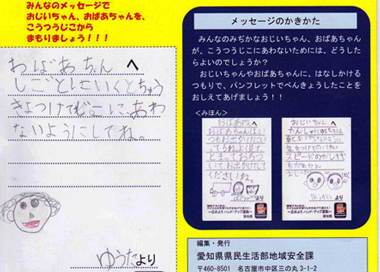 みんなのメッセージで
おじいちゃん、おばあちゃんを、
こうつうじこから
まもりましょう！！！
おばあちゃん へ
しごとにいくとちゅう
きよつけてじこにあわ
ないようにしてね。
ゆうたより
メッセージのかきかた
みんなのみぢかなおじいちゃん、おばあちゃん
が、こうつうじこにあわないためには、どうした
らよいのでしょうか？
おじいちゃんやおばあちゃんに、はなしかける
つもりで、パンフレットでべんきょうしたことを
おしえてあげましょう！！
＜みほん＞
おばあちゃんへ
おじいちゃんへ
編集・発行
愛知県県民生活部地域安全課
〒460-8501 名古屋市中区三の丸3-1-